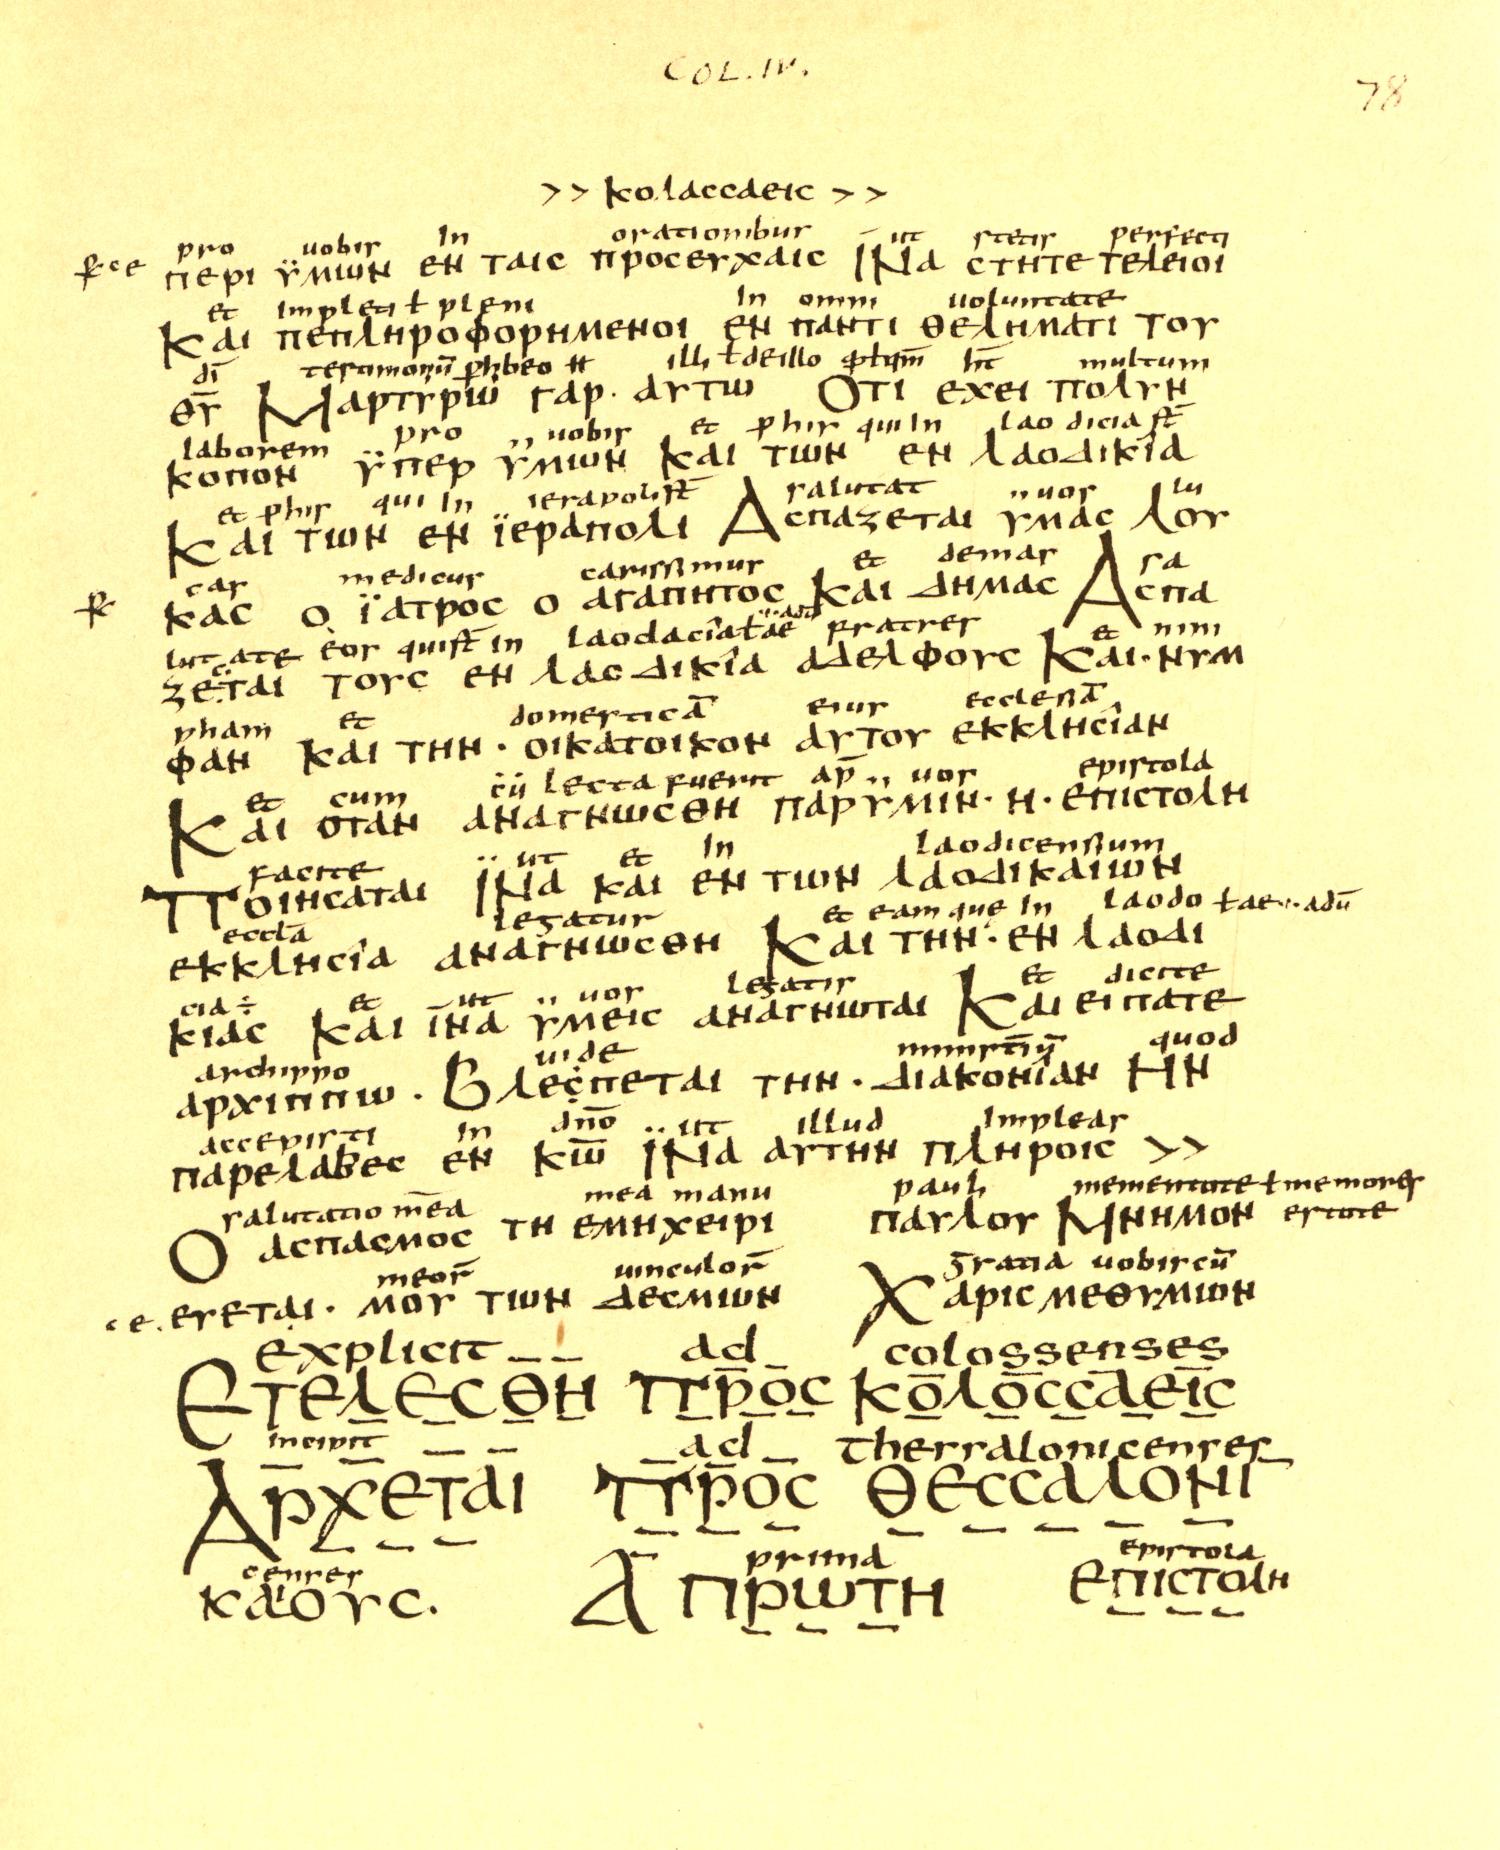 COL. IV.
78
>> κολαccαειc >>
pro uobis In orationibus ut stetis perfecti
περι ϋμιων εν ταιc προcευχαιc ΪΝα cτητε τελειοι
et impleti ł pleni In omni uoluntate
Και πεπληροφορημενοι εν παντι θεληματι του
dī multum
θ̅υ̅ Μαρτυρω γαρ· αυτω Οτι εχει πολυν
laborem pro uobis et phis qui In laodicia st̄
κοπον ϋπερ ϋμιων Και των εν λαοδικῖα
et phis qui In ierapoli st̄ salutat uos lu
Και των εν ϊεραπολι Αcπαζεται υμαc λου
cas medicus carissimus et demas sa
καc ο ϊατροc ο αγαπητοc Και δημαc Αcπα
lutate eos qui st̄ in fratres et nim
ζεται τουc εν λαοδικῖα αδελφουc Και· νυμ
pham et domesticā eius ecclesiā
φαν και την· οικατοικον αυτου εκκληcῖαν
et cum cū lecta fuerit ap̄ uos epistola
Και οταν αναγνωcθη παρυμιν· η· επιcτολη
facite ut et In laodicensium
Ποιηcαται ΪΝα και εν των λαοδικαιων
ecclā legatur et eam que In laodo ł ae·· adū
εκκληcῖα αναγνωcθη Και την· εν λαοδι
cia ÷ et ut uos legatis et dicite
κιαc Και ῑνα υμειc αναγνωται Και ειπατε
archippo uide quod
αρχιππω· Βλεcπεται την· διακονῖαν ΗΝ
accepisti in dn̄o ut illud Impleas
παρελαβεc εν κ̅ω̅ ΪΝα αυτην πληροιc >>
salutatio mēa mea manu pauli mementote ł memores
Ο αcπαcμοc τη εμηχειρι παυλου Μνημον estote
meor̄ uinculor̄ gratia uobiscū
ευεται· μου των δεcμιων Χαριc μεθυμιων
explicit ad colossenses
Ετελεcθη Προc κολοccαειc
incipit ad thessalonicenses
Αρχεται Προc θεccαλονι
censes prima epistola
καιουc. Α̅ πρωτη επιcτολη